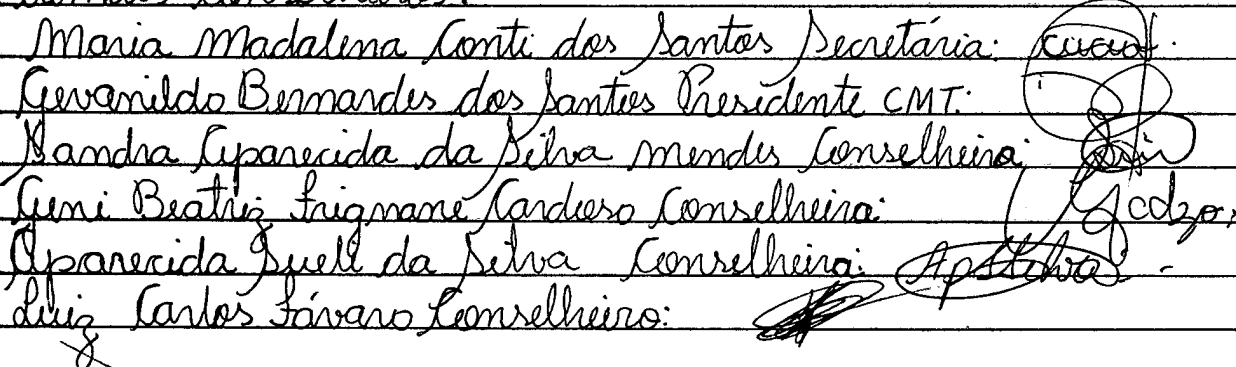 Maria Madalena Conti dos Santos Secretária:
Gevanildo Bernardes dos Santos Presidente CMT:
Sandra Aparecida da Silva Mendes Conselheira:
Geni Beatriz Frignani Cardoso Conselheira:
Aparecida Sueli da Silva Conselheira: ApSilva
Luiz Carlos Fávaro Conselheiro: